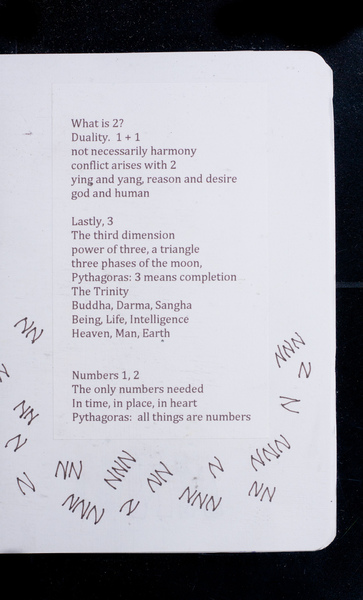 What is 2?
Duality. 1 + 1
not necessarily harmony
conflict arises with 2
ying and yang, reason and desire
god and human
Lastly, 3
The third dimension
power of three, a triangle
three phases of the moon,
Pythagoras: 3 means completion
The Trinity
Buddha, Darma, Sangha
Being, Life, Intelligence
Heaven, Man, Earth
Numbers 1, 2
The only numbers needed
In time, in place, in heart
Pythagoras: all things are numbers